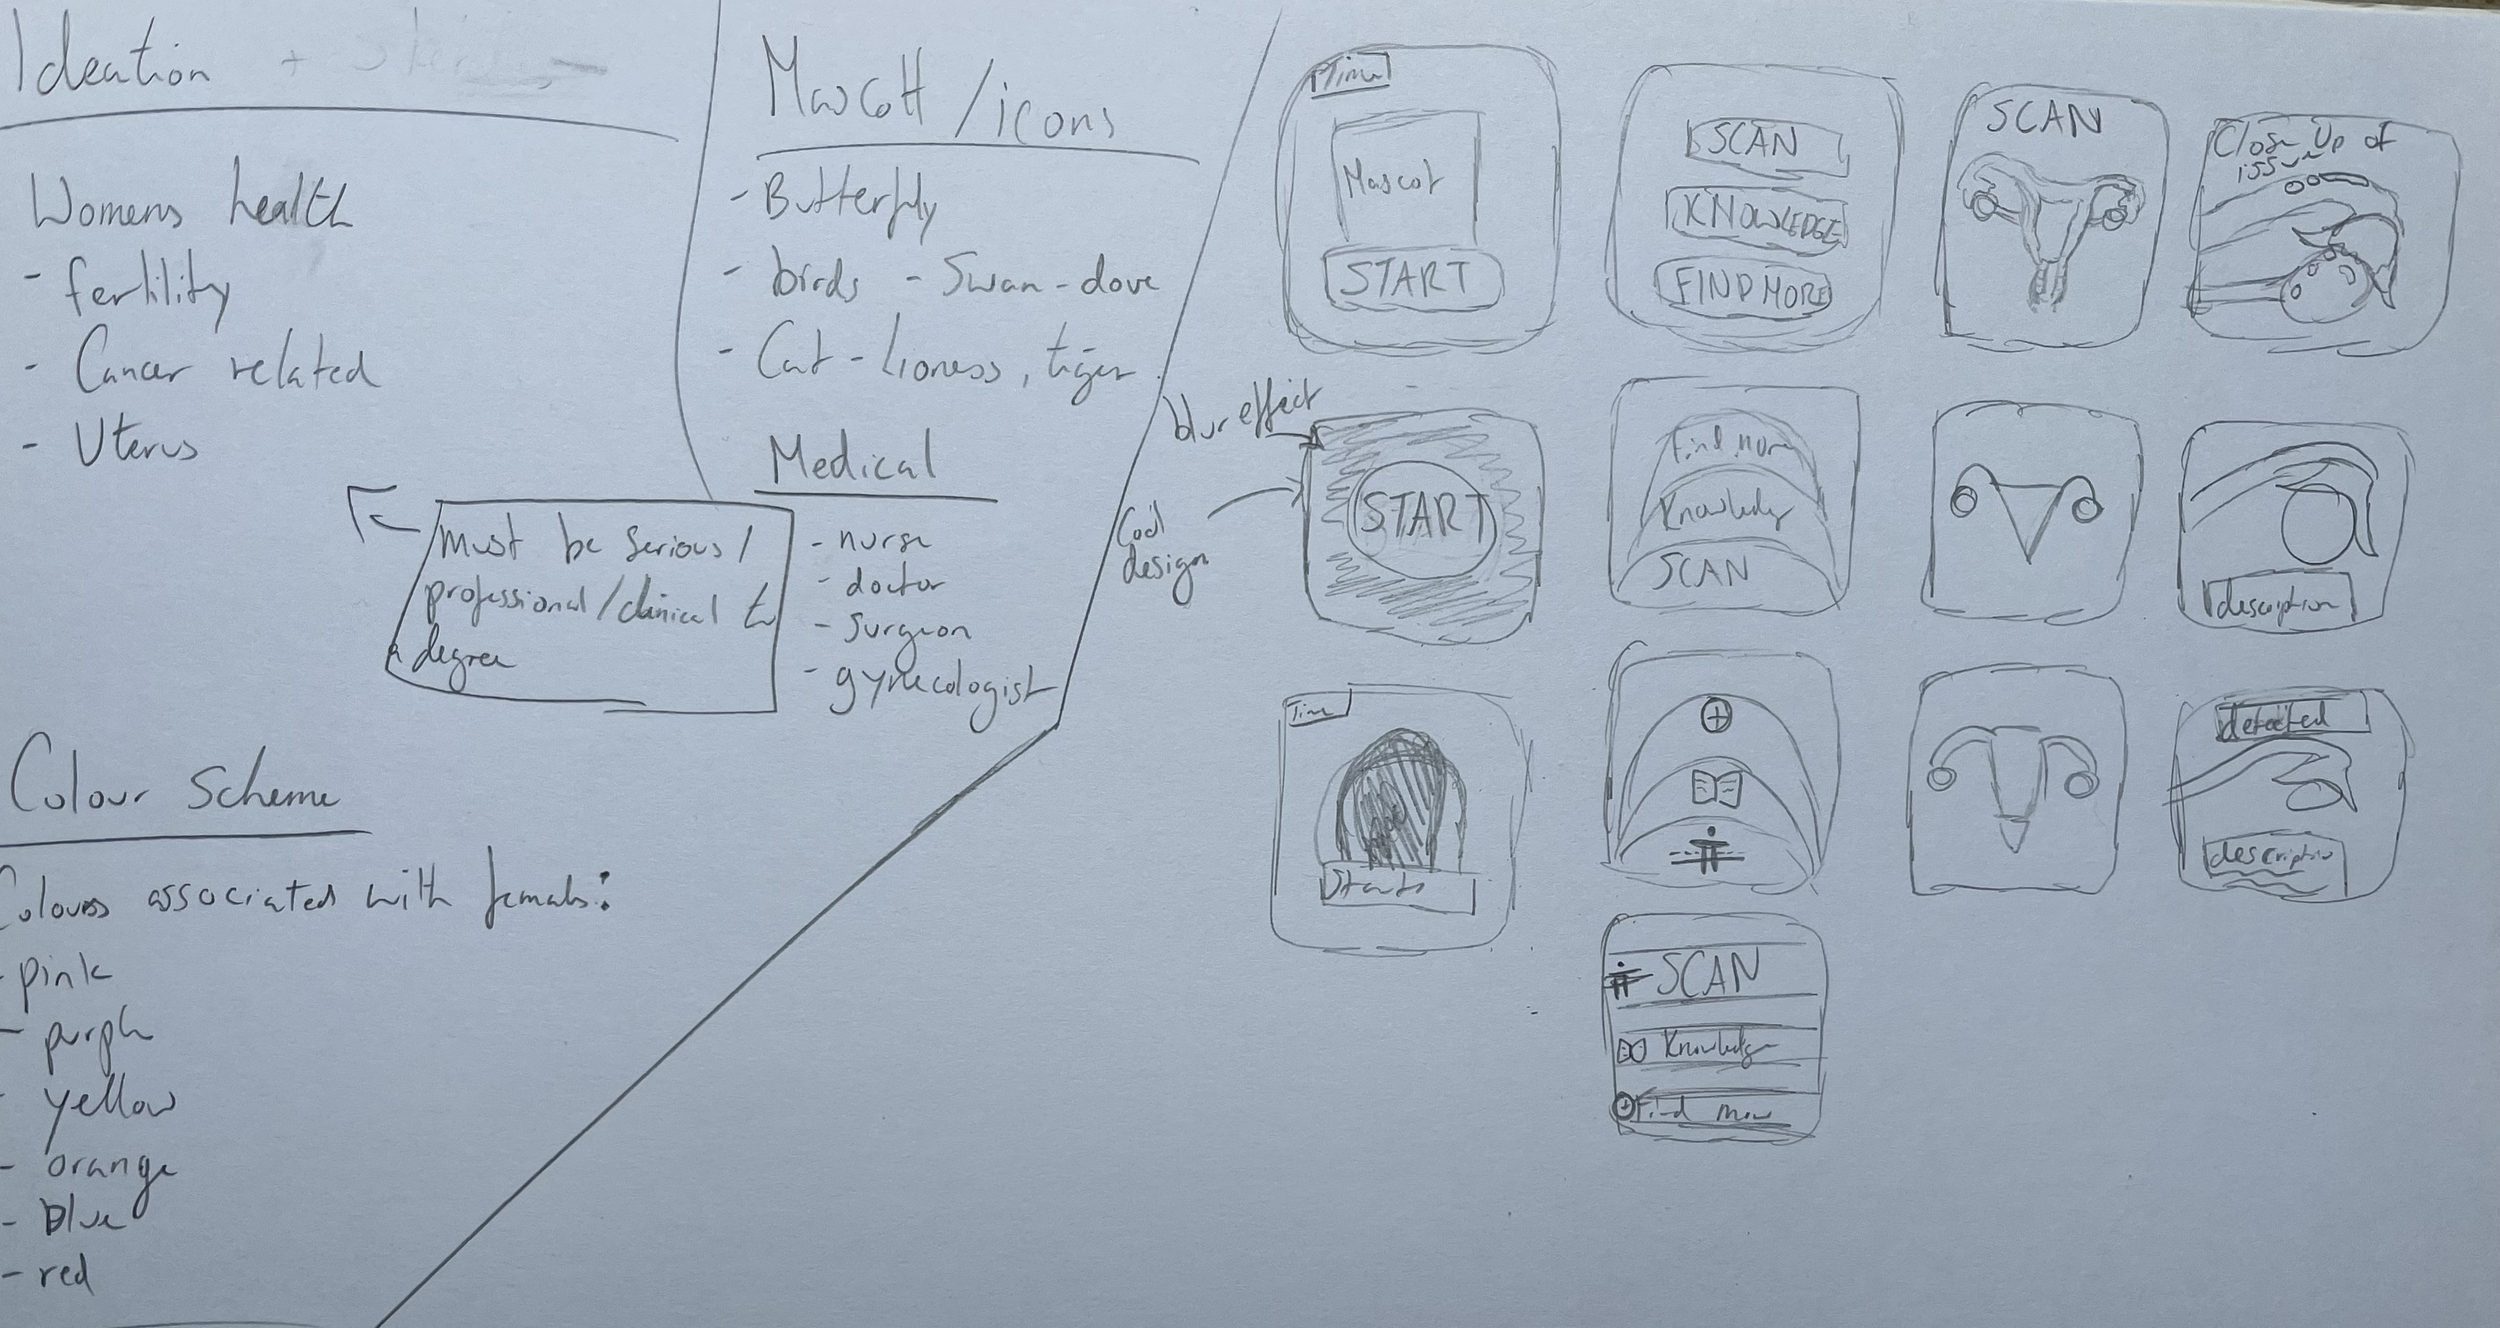 Ideation +
Womens health
- fertility
- Cancer related
- Uterus
Must be serious /
professional/clinical to
a degree
Colour Scheme
Colours associated with females:
- pink
- purple
- yellow
- orange
- blue
- red
Mascott /icons
- Butterfly
- birds - Swan - dove
- Cat - Lioness, tiger
Medical
- nurse
- doctor
- surgeon
- gynecologist
Time
Mascot
START
SCAN
KNOWLEDGE
FIND MORE
SCAN
Close Up of
issue
blur effect
Cool
design
START
Find more
Knowledge
SCAN
description
Time
Start
detected
description
SCAN
Knowledge
Find more